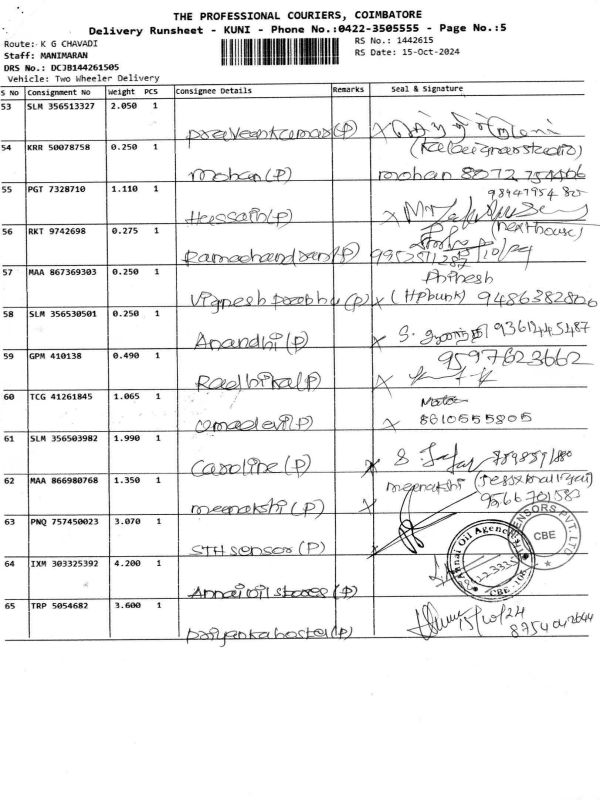 THE PROFESSIONAL COURIERS, COIMBATORE
Delivery Runsheet - KUNI - Phone No.:0422-3505555 - Page No.:5
Route: K G CHAVADI
RS No.: 1442615
Staff: MANIMARAN
RS Date: 15-Oct-2024
DRS No.: DCJB144261505
Vehicle: Two Wheeler Delivery
S No Consignment No Weight PCS Consignee Details Remarks Seal & Signature
53 SLM 356513327 2.050 1
Praveenkumar(P) x
(Kalaignar studio)
54 KRR 50078758 0.250 1
mohan(P) mohan 8072 754406
55 PGT 7328710 1.110 1
Hussain(P) x
(next house)
56 RKT 9742698 0.275 1
Ramachandran(P)
57 MAA 867369303 0.250 1
Vignesh Prabhu(P) x (HPbunk) 9486382806
58 SLM 356530501 0.250 1
Anandhi(P) x S.
59 GPM 410138 0.490 1
9597623662
Radhika(P) x
60 TCG 41261845 1.065 1
Umadevi(P) x 8610555805
61 SLM 356503982 1.990 1
Caroline(P) x
62 MAA 866980768 1.350 1
meenakshi
meenakshi(P) x 9566701580
63 PNQ 757450023 3.070 1
STH sensor(P) x
SENSORS PVT. LTD
CBE
64 IXM 303325392 4.200 1
Annai Oil Agency
CBE
Annai oil stores(P)
65 TRP 5054682 3.600 1
Priyanka hostel(P) 15/10/24
8754042644